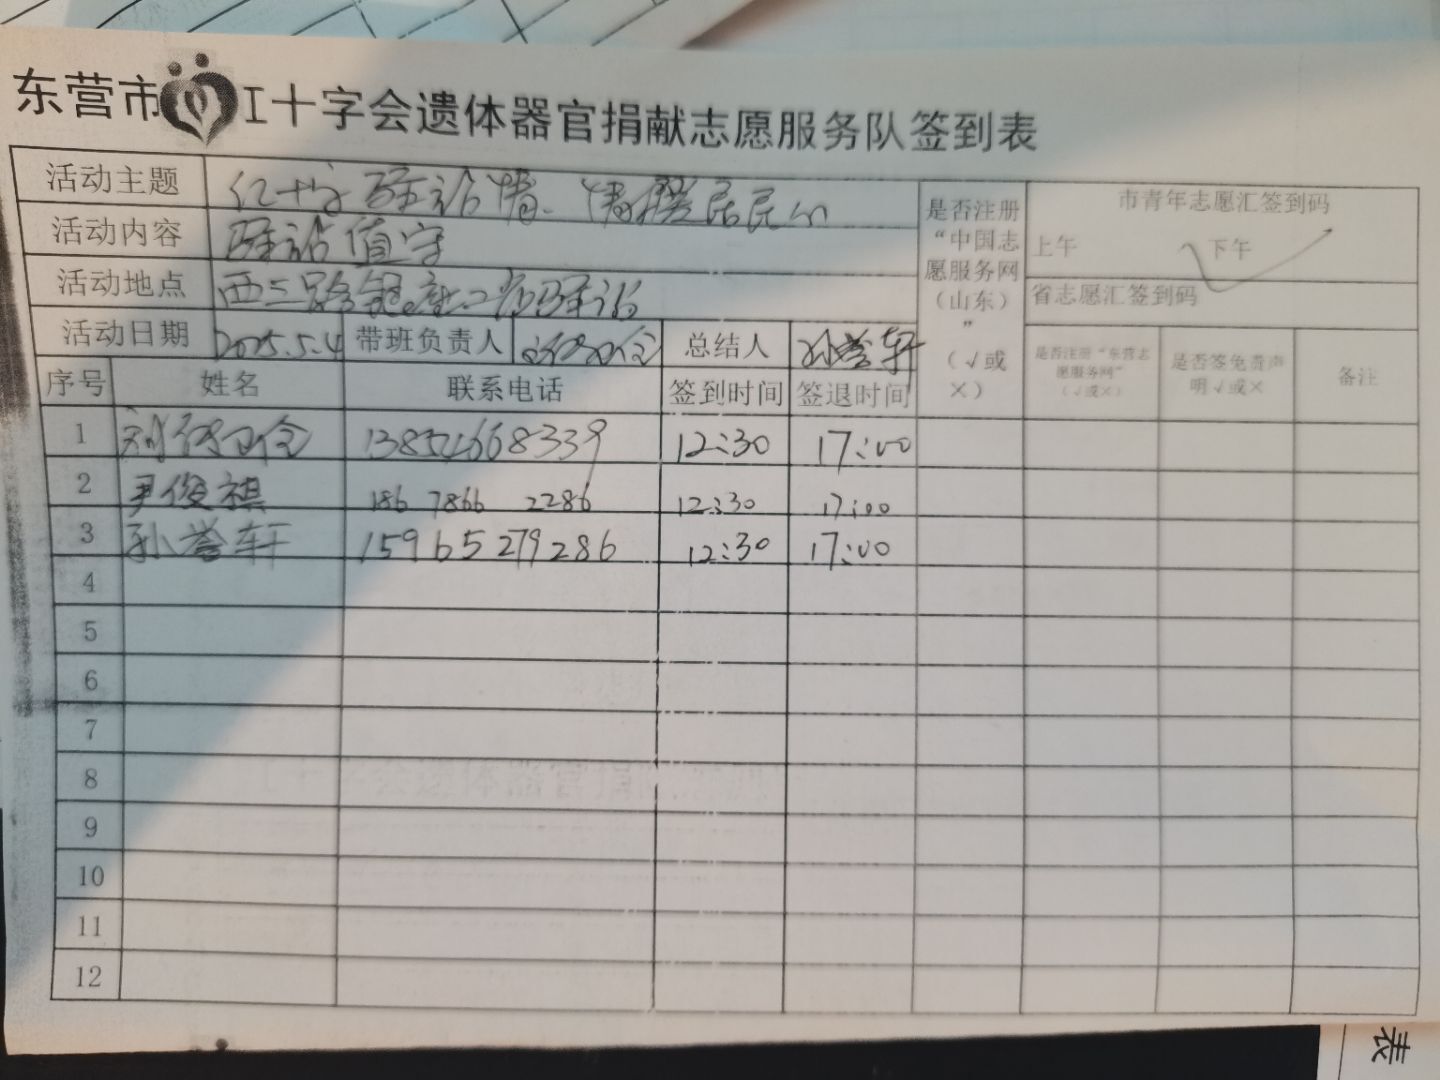 东营市工十字会遗体器官捐献志愿服务队签到表
活动主题 红十字驿站情、情撰居民心
活动内容 驿站值守
活动地点 西三路银座二商驿站
活动日期 2025.5.4 带班负责人 总结人 孙誉轩
是否注册“中国志愿服务网（山东）”（√或×）
市青年志愿汇签到码
上午 下午 √
省志愿汇签到码
序号 姓名 联系电话 签到时间 签退时间 是否注册“东营志愿服务网”（√或×） 是否签免责声明√或× 备注
1 12:30 17:00
2 尹俊祺 186 7866 2286 12:30 17:00
3 孙誉轩 15965279286 12:30 17:00
4
5
6
7
8
9
10
11
12
表